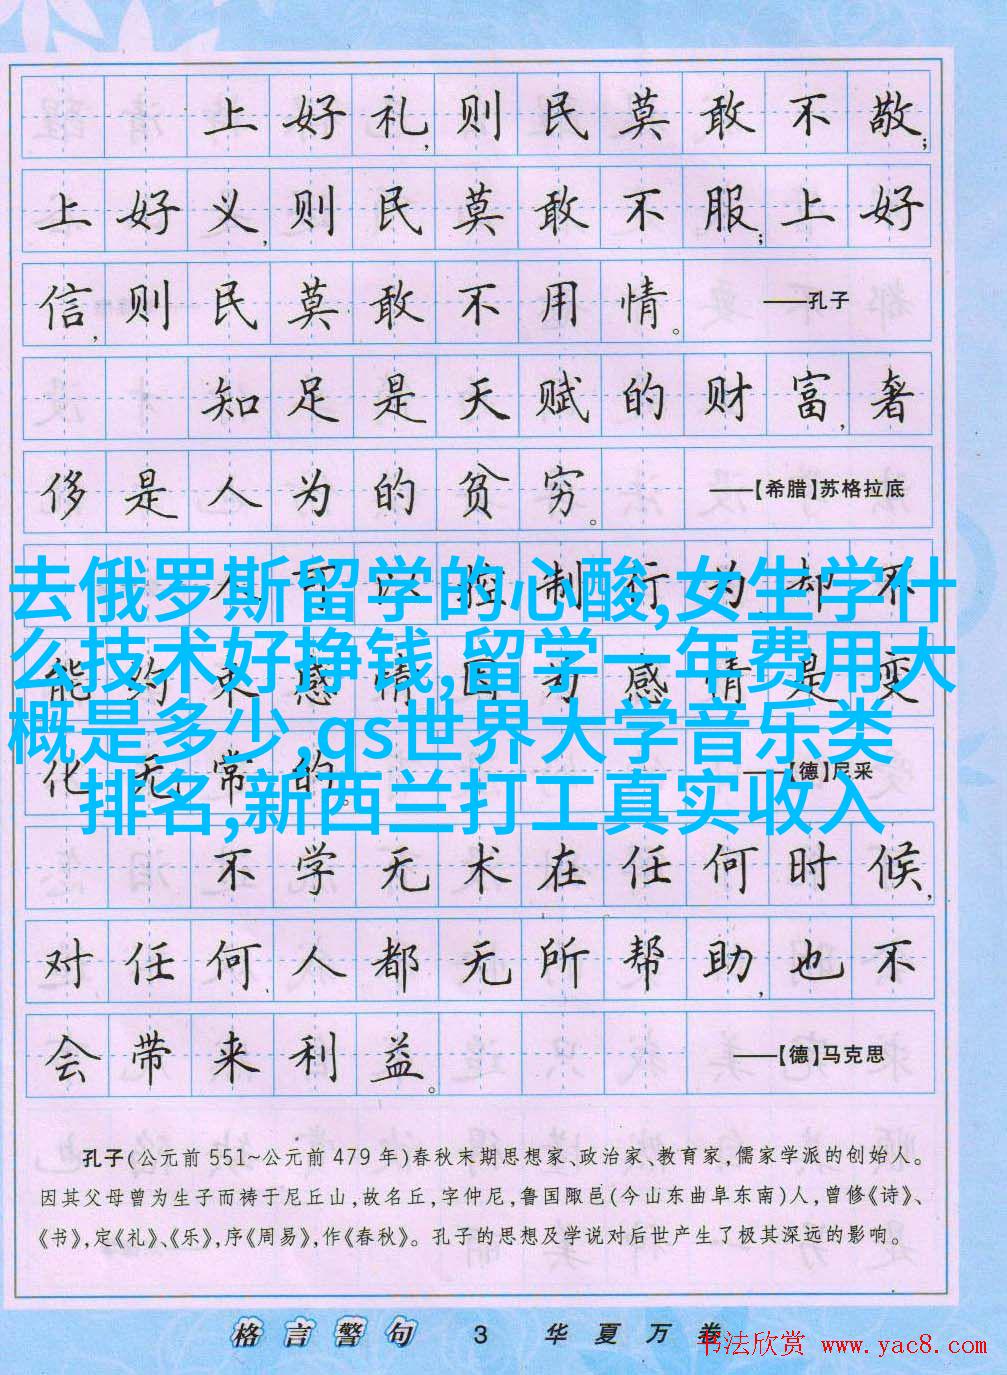 上好礼,则民莫敢不敬;
上好义,则民莫敢不服;上好
信,则民莫敢不用情。 ——孔子
知足是天赋的财富,奢
侈是人为的贫穷。 ——【希腊】苏格拉底
人可以控制行为,却不
去俄罗斯留学的心酸,女生学什
能约束感情,因为感情是变
么技术好挣钱,留学一年费用大
概是多少,qs世界大学音乐类
化无常的。 ——【德】尼采
排名,新西兰打工真实收入
不学无术在任何时候,
对任何人都无所帮助,也不
会带来利益。 ——【德】马克思
孔子(公元前551~公元前479年)春秋末期思想家、政治家、教育家,儒家学派的创始人。
因其父母曾为生子而祷于尼丘山,故名丘,字仲尼,鲁国陬邑(今山东曲阜东南)人,曾修《诗》、
《书》,定《礼》、《乐》,序《周易》,作《春秋》。孔子的思想及学说对后世产生了极其深远的影响。
格言警句 3 华夏万卷
书法欣赏 www.yac8.com